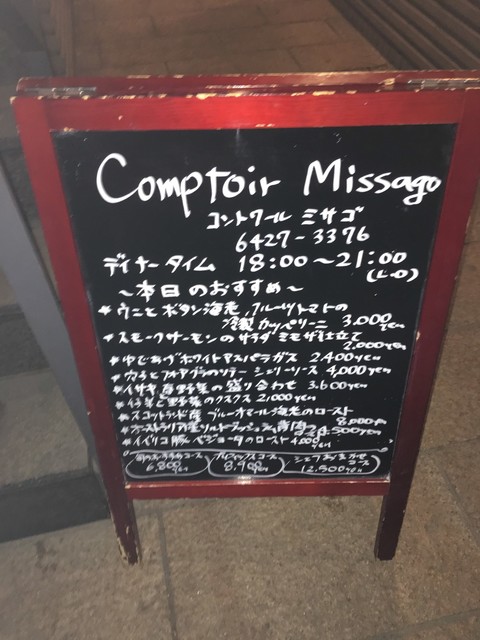 Comptoir Missago
コントワール ミサゴ
6427-3376
ディナータイム 18:00〜21:00
(L.O)
〜本日のおすすめ〜
*ウニとボタン海老、フルーツトマトの
冷製カッペリーニ 3,000yen
*スモークサーモンのサラダ ミモザ仕立て
2,000yen
*ゆであげホワイトアスパラガス 2,400yen
*穴子とフォアグラのソテー シェリーソース 4,000yen
*イサキ 夏野菜の盛り合わせ 3,600yen
野菜のクスクス 2,000yen
*スコットランド産 ブルーオマール海老のロースト
8,000yen
*オーストラリア産ソルトブッシュ
4,500yen
*イベリコ豚 ベジョータのロースト 4,000yen
おすすめコース
6,800yen
コース
8,900yen
シェフおまかせ
コース
12,500yen